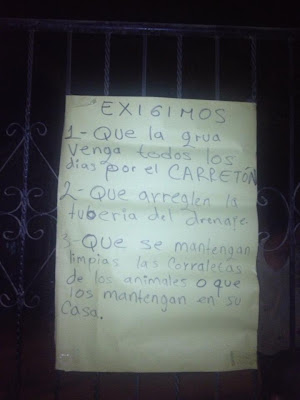 EXIGIMOS
1- QUe la grua
venga todos los
dias por el CARRETÓN
2- QUe arreglen la
tuberia del drenaje.
3- QUe se mantengan
limpias las corralecas
de los animales o que
los mantengan en su
casa.